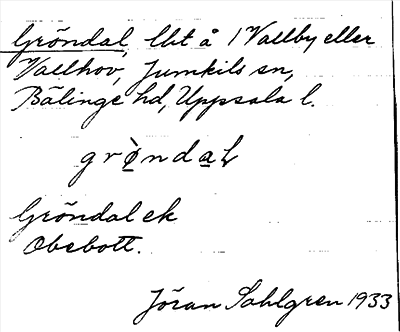 Gröndal, lht å 1 Vallby eller
Vallhov, Jumkils sn,
Bälinge hd, Uppsala l.
grö̀ndal
Gröndal ek
Obebott.
Jöran Sahlgren 1933